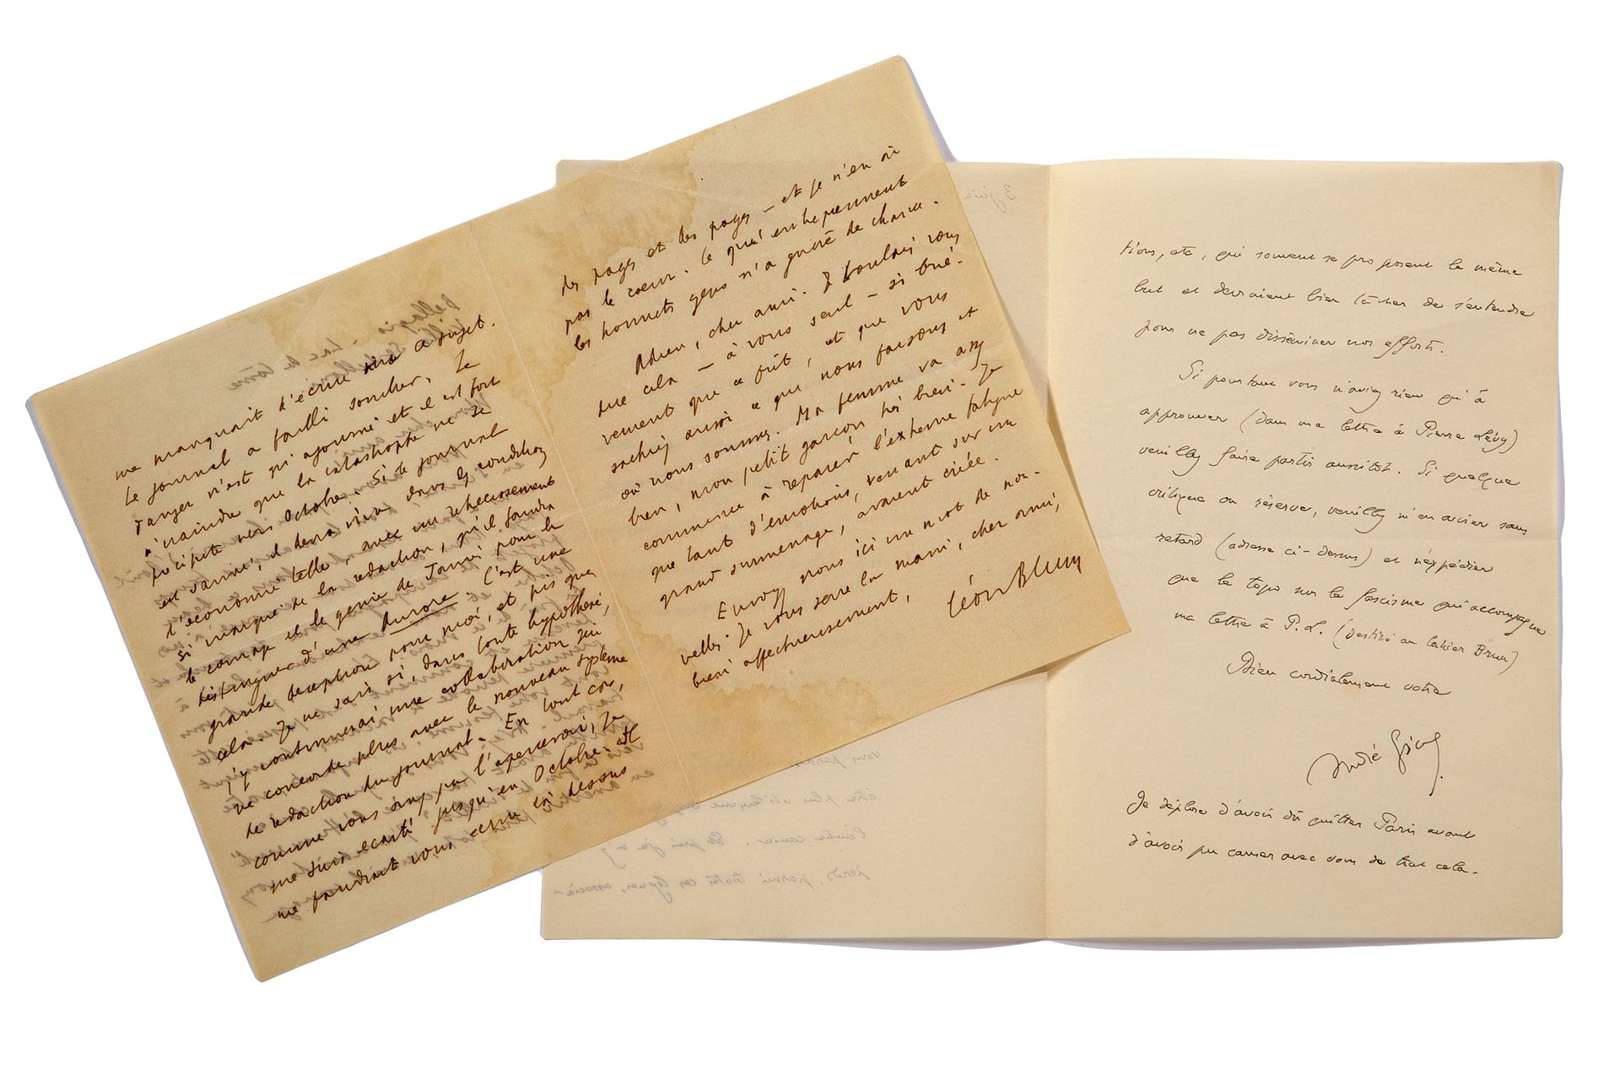 me manquait d'écrire à ce sujet.
Le journal a failli sombrer. Le
danger n'est qu'ajourné et il est fort
à craindre que la catastrophe ne se
précipite vers Octobre. Si le journal
est sauvé, il devra vivre dans des conditions
d'économie telle, avec un rétrécissement
si marqué de la rédaction, qu'il faudra
le courage et le génie de Jaurès pour le
distinguer d'une Aurore. C'est une
grande déception pour moi, et pis que
cela. Je ne sais si, dans toute hypothèse,
j'y continuerai une collaboration qui
ne concorde plus avec le nouveau système
de rédaction du journal. En tout cas,
comme vous avez pu l'apercevoir, je
me suis écarté jusqu'en Octobre. Il
me faudrait vous écrire là dessus
des pages et des pages — et je n'en ai
pas le coeur. Ce qu'entreprennent
les honnêtes gens n'a guère de chance.
Adieu, cher ami. Je voulais vous
dire cela — à vous seul — si briè-
vement que ce fût, et que vous
sachiez aussi ce que nous faisons et
où nous sommes. Ma femme va assez
bien, mon petit garçon très bien. Je
commence à réparer l'extrême fatigue
que tant d'émotions, venant sur un
grand surmenage, avaient créée.
Envoyez nous ici un mot de nou-
velles. Je vous serre la main, cher ami,
bien affectueusement,
Léon Blum
tions, etc, qui souvent se proposent le même
but et devraient bien tâcher de s'entendre
pour ne pas disséminer nos efforts.
Si pourtant vous n'aviez rien qu'à
approuver (dans ma lettre à Pierre Lévy)
veuillez faire partir aussitôt. Si quelque
critique ou réserve, veuillez m'en aviser sans
retard (adresse ci-dessus) et n'expédier
que le topo sur le fascisme qui accompagne
ma lettre à P.L. (destiné au Cahier Brun)
Bien cordialement votre
André Gide
Je déplore d'avoir dû quitter Paris avant
d'avoir pu causer avec vous de tout cela.